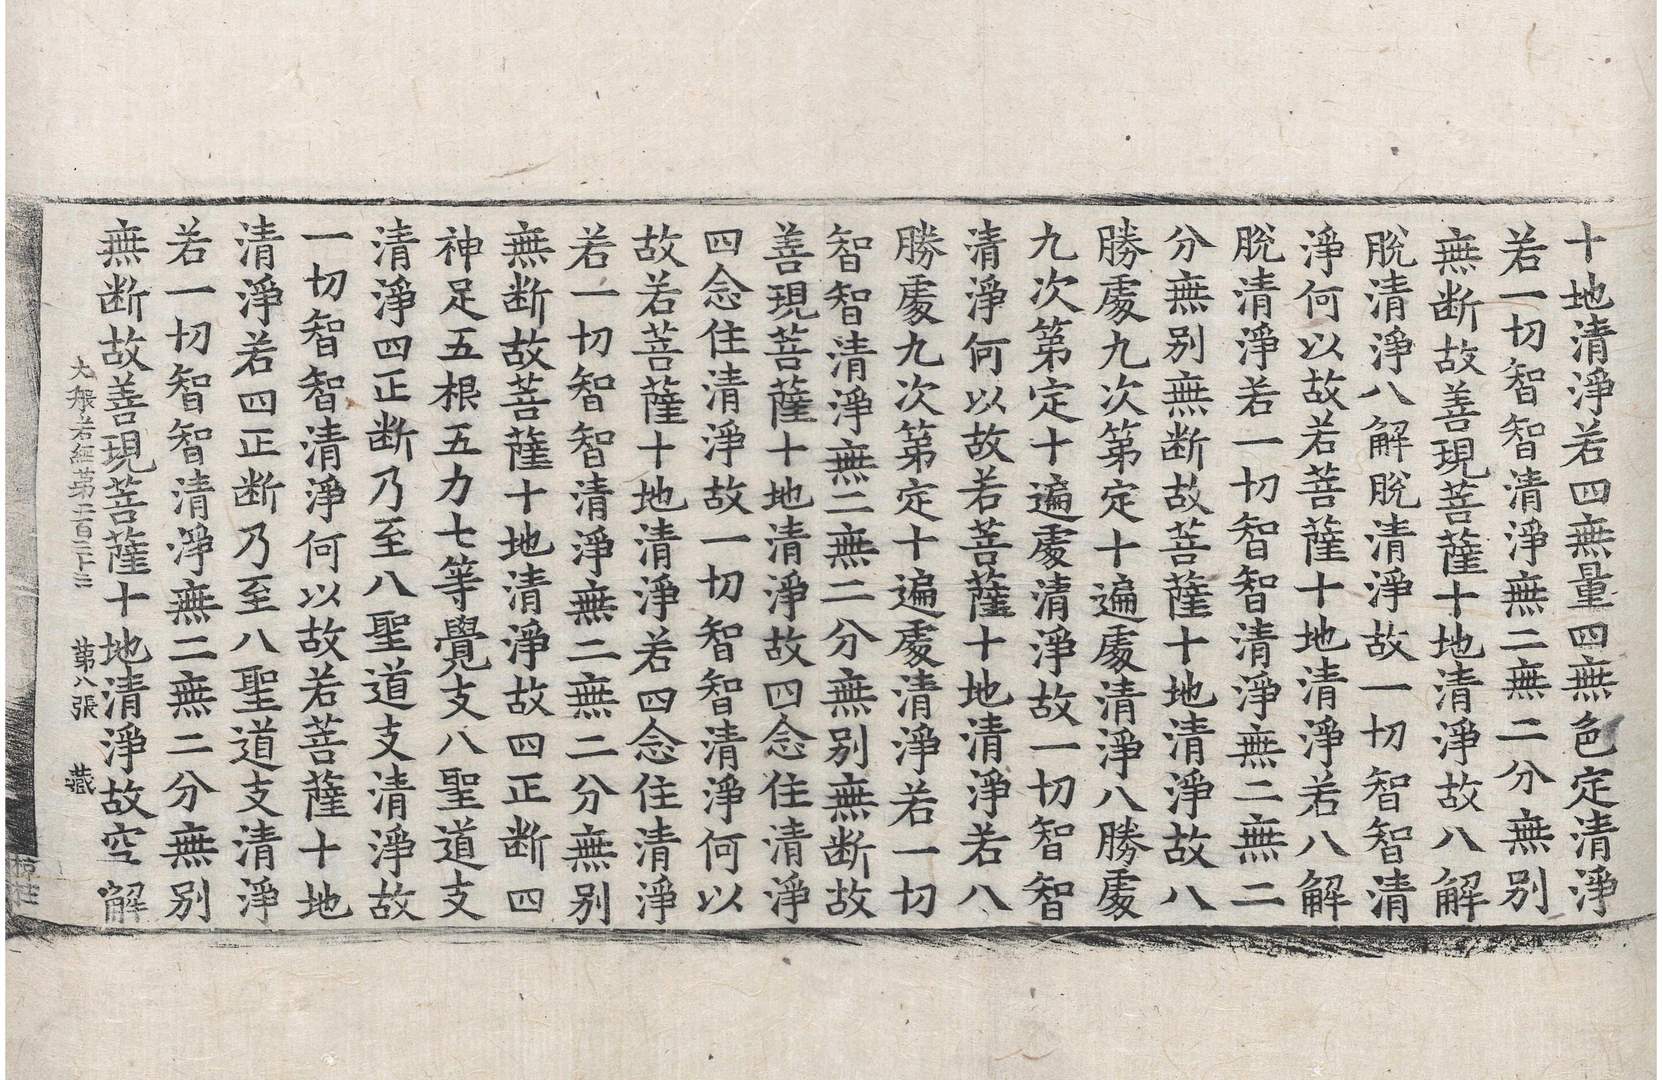 十地清淨若四無量四無色定清淨
若一切智智清淨無二無二分無别
無断故善現菩薩十地清淨故八解
脫清淨八解脫清淨故一切智智清
淨何以故若菩薩十地清淨若八解
脫清淨若一切智智清淨無二無二
分無别無断故菩薩十地清淨故八
勝處九次第定十遍處清淨八勝處
九次第定十遍處清淨故一切智智
清淨何以故若菩薩十地清淨若八
勝處九次第定十遍處清淨若一切
智智清淨無二無二分無别無断故
善現菩薩十地清淨故四念住清淨
四念住清淨故一切智智清淨何以
故若菩薩十地清淨若四念住清淨
若一切智智清淨無二無二分無别
無断故菩薩十地清淨故四正断四
神足五根五力七等覺支八聖道支
清淨四正断乃至八聖道支清淨故
一切智智清淨何以故若菩薩十地
清淨若四正断乃至八聖道支清淨
若一切智智清淨無二無二分無别
無断故善現菩薩十地清淨故空解
大般若經第二百二十三 第八張 藏